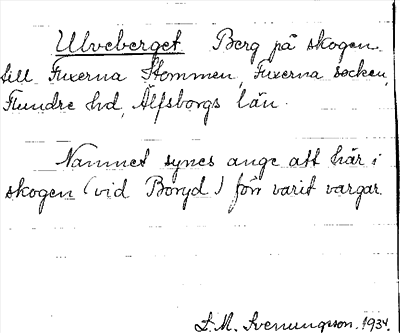 Ulveberget Berg på skogen
till Fuxerna Stommen, Fuxerna socken,
Flundre hd, Älfsborgs län.
Namnet synes ange att här i
skogen (vid Boryd) förr varit vargar.
S. M. Svenungsson. 1934.